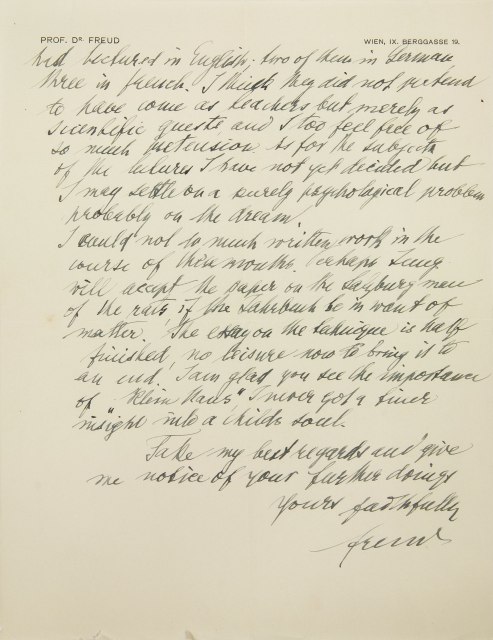 PROF. DR. FREUD
WIEN, IX. BERGGASSE 19.
had lectured in English, two of them in German
three in french. I think they did not pretend
to have come as teachers but merely as
scientific guests and I too feel free of
so much pretension. As for the subjects
of the lectures I have not yet decided but
I may settle on a purely psychological problem
probably on the dream.
I could not do much written work in the
course of these months. Perhaps Jung
will accept the paper on the Salzburg man
of the rats, if the Jahrbuch be in want of
matter. The essay on the technique is half
finished, no leisure now to bring it to
an end. I am glad you see the importance
of "Klein Hans", I never got a finer
insight into a child's soul.
Take my best regards and give
me notice of your further doings
Yours faithfully
Freud